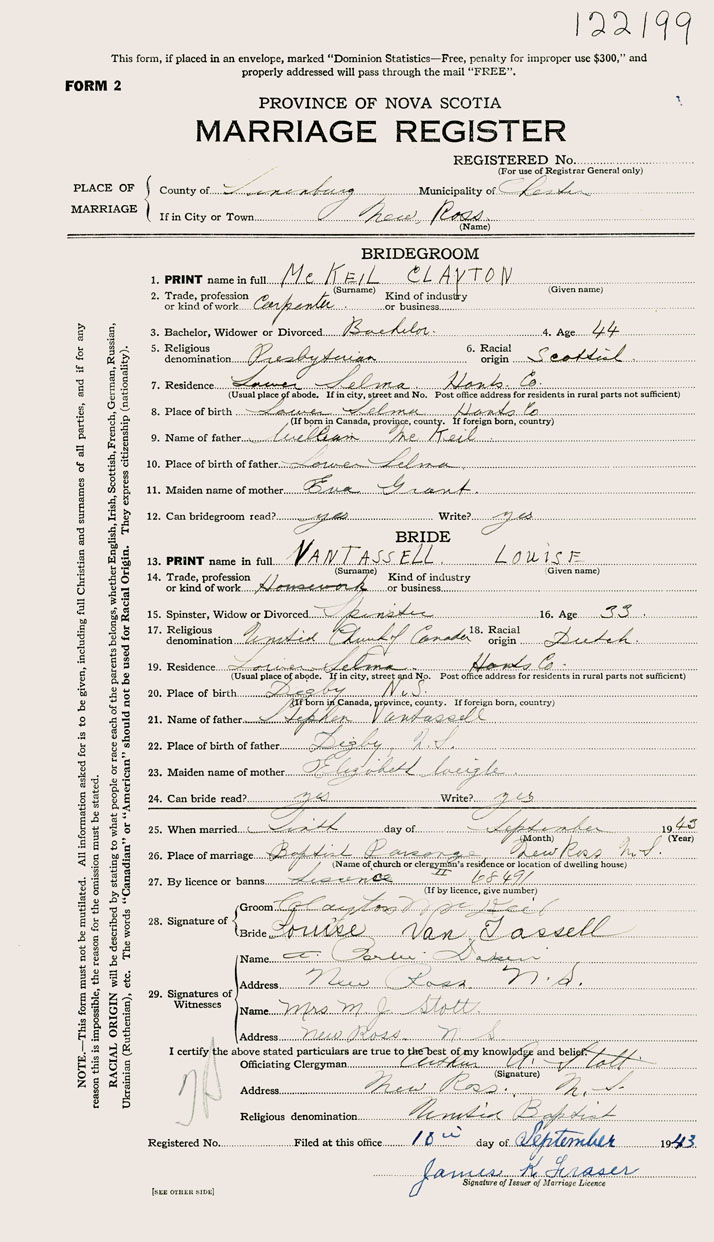 122199
This form, if placed in an envelope, marked "Dominion Statistics—Free, penalty for improper use $300," and
properly addressed will pass through the mail "FREE".
FORM 2
PROVINCE OF NOVA SCOTIA
MARRIAGE REGISTER
REGISTERED No.
(For use of Registrar General only)
PLACE OF MARRIAGE
County of Lunenburg Municipality of Chester
If in City or Town New Ross.
(Name)
BRIDEGROOM
1. PRINT name in full McKEIL CLAYTON
(Surname) (Given name)
2. Trade, profession or kind of work Carpenter Kind of industry or business
3. Bachelor, Widower or Divorced Bachelor. 4. Age 44
5. Religious denomination Presbyterian 6. Racial origin Scottish.
7. Residence Lower Selma Hants. Co.
(Usual place of abode. If in city, street and No. Post office address for residents in rural parts not sufficient)
8. Place of birth Lower Selma Hants Co
(If born in Canada, province, county. If foreign born, country)
9. Name of father William Mc Keil
10. Place of birth of father Lower Selma.
11. Maiden name of mother Eva Grant.
12. Can bridegroom read? yes Write? yes
BRIDE
13. PRINT name in full VANTASSELL LOUISE
(Surname) (Given name)
14. Trade, profession or kind of work Housework Kind of industry or business
15. Spinster, Widow or Divorced Spinster 16. Age 33.
17. Religious denomination United Church of Canada 18. Racial origin Dutch.
19. Residence Lower Selma. Hants Co.
(Usual place of abode. If in city, street and No. Post office address for residents in rural parts not sufficient)
20. Place of birth Digby N.S.
(If born in Canada, province, county. If foreign born, country)
21. Name of father Stephen Vantassell
22. Place of birth of father Digby N.S.
23. Maiden name of mother Elizabeth
24. Can bride read? yes Write? yes
25. When married day of September 1943
(Month) (Year)
26. Place of marriage Baptist Parsonage, New Ross N.S.
(Name of church or clergyman's residence or location of dwelling house)
27. By licence or banns Licence 68491
(If by licence, give number)
28. Signature of
Groom Clayton McKeil
Bride Louise Van Tassell
29. Signatures of Witnesses
Name
Address New Ross N.S.
Name Mrs M J Stott.
Address New Ross. N S
I certify the above stated particulars are true to the best of my knowledge and belief.
Officiating Clergyman Stott
(Signature)
Address New Ross. N.S.
Religious denomination United Baptist
Registered No. Filed at this office 10 day of September 1943
James K Fraser
Signature of Issuer of Marriage Licence
[SEE OTHER SIDE]
NOTE.—This form must not be mutilated. All information asked for is to be given, including full Christian and surnames of all parties, and if for any
reason this is impossible, the reason for the omission must be stated.
RACIAL ORIGIN will be described by stating to what people or race each of the parents belongs, whether English, Irish, Scottish, French, German, Russian,
Ukrainian (Ruthenian), etc. The words "Canadian" or "American" should not be used for Racial Origin. They express citizenship (nationality).